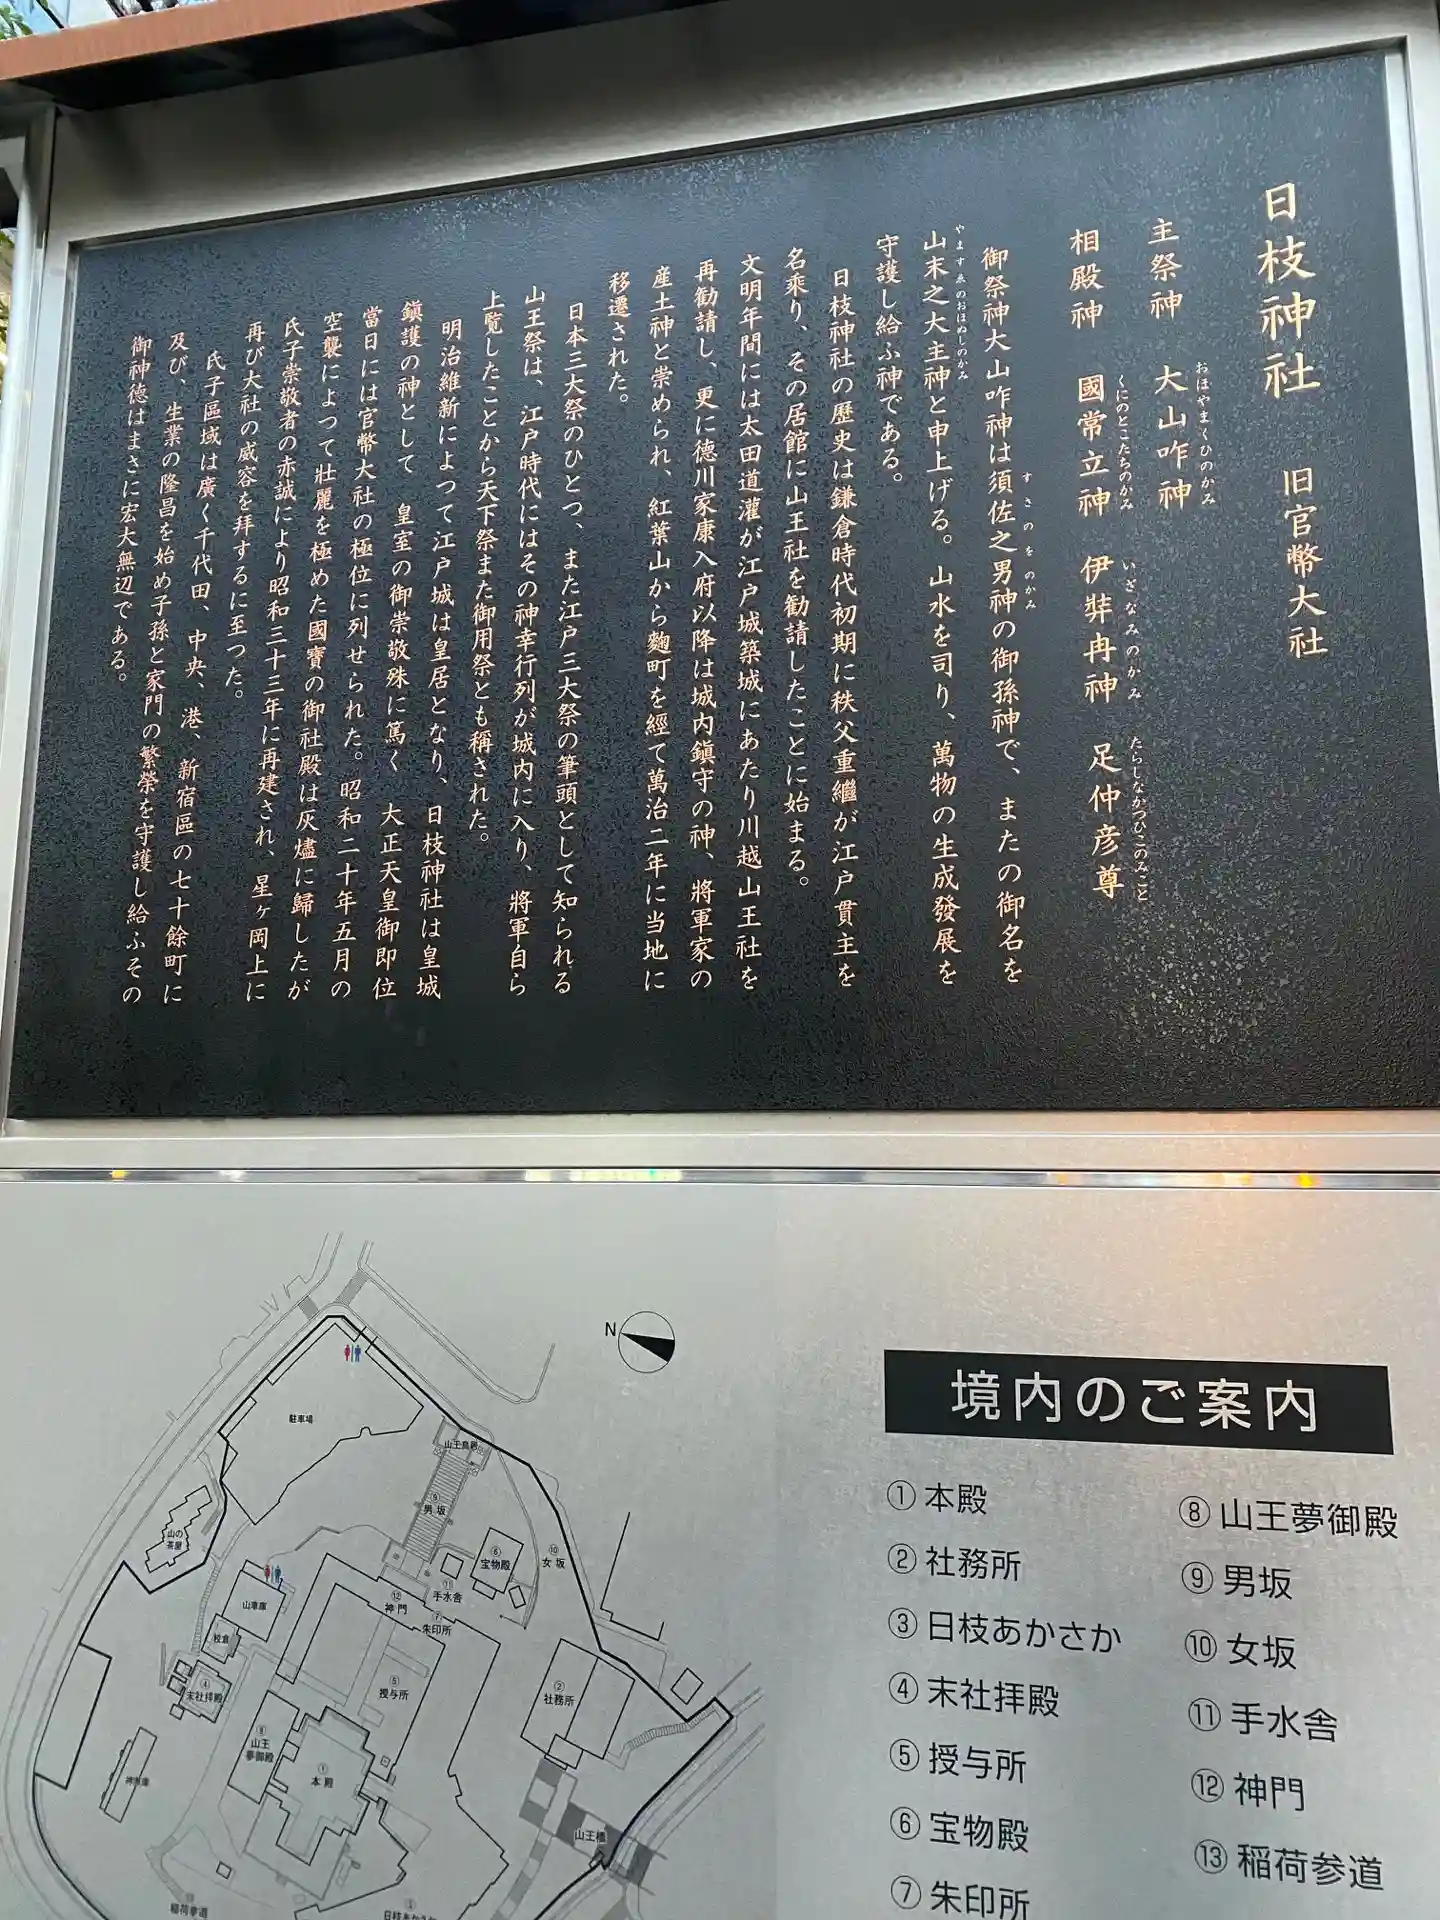 日枝神社　旧官幣大社
主祭神　大山咋神
おほやまくひのかみ
相殿神　國常立神　伊弉冉神　足仲彦尊
くにのとこたちのかみ　いざなみのかみ　たらしなかつひこのみこと
御祭神大山咋神は須佐之男神の御孫神で、またの御名を
すさのをのかみ
山末之大主神と申上げる。山水を司り、萬物の生成發展を
やますゑのおほぬしのかみ
守護し給ふ神である。
日枝神社の歴史は鎌倉時代初期に秩父重繼が江戸貫主を
名乘り、その居館に山王社を勧請したことに始まる。
文明年間には太田道灌が江戸城築城にあたり川越山王社を
再勧請し、更に德川家康入府以降は城内鎭守の神、將軍家の
産土神と崇められ、紅葉山から麴町を經て萬治二年に当地に
移遷された。
日本三大祭のひとつ、また江戸三大祭の筆頭として知られる
山王祭は、江戸時代にはその神幸行列が城内に入り、將軍自ら
上覧したことから天下祭また御用祭とも稱された。
明治維新によつて江戸城は皇居となり、日枝神社は皇城
鎭護の神として　皇室の御崇敬殊に篤く　大正天皇御即位
當日には官幣大社の極位に列せられた。昭和二十年五月の
空襲によつて壯麗を極めた國寶の御社殿は灰燼に歸したが
氏子崇敬者の赤誠により昭和三十三年に再建され、星ヶ岡上に
再び大社の威容を拜するに至つた。
氏子區域は廣く千代田、中央、港、新宿區の七十餘町に
及び、生業の隆昌を始め子孫と家門の繁榮を守護し給ふその
御神德はまさに宏大無辺である。
N
駐車場
山王鳥居
⑨
男坂
山の
茶屋
⑥
宝物殿
⑩
女坂
⑪
手水舎
⑫
神門
⑦
朱印所
山車庫
校倉
④
末社拝殿
⑤
授与所
②
社務所
⑧
山王
夢御殿
①
本殿
山王橋
稲荷参道
境内のご案内
① 本殿
② 社務所
③ 日枝あかさか
④ 末社拝殿
⑤ 授与所
⑥ 宝物殿
⑦ 朱印所
⑧ 山王夢御殿
⑨ 男坂
⑩ 女坂
⑪ 手水舎
⑫ 神門
⑬ 稲荷参道